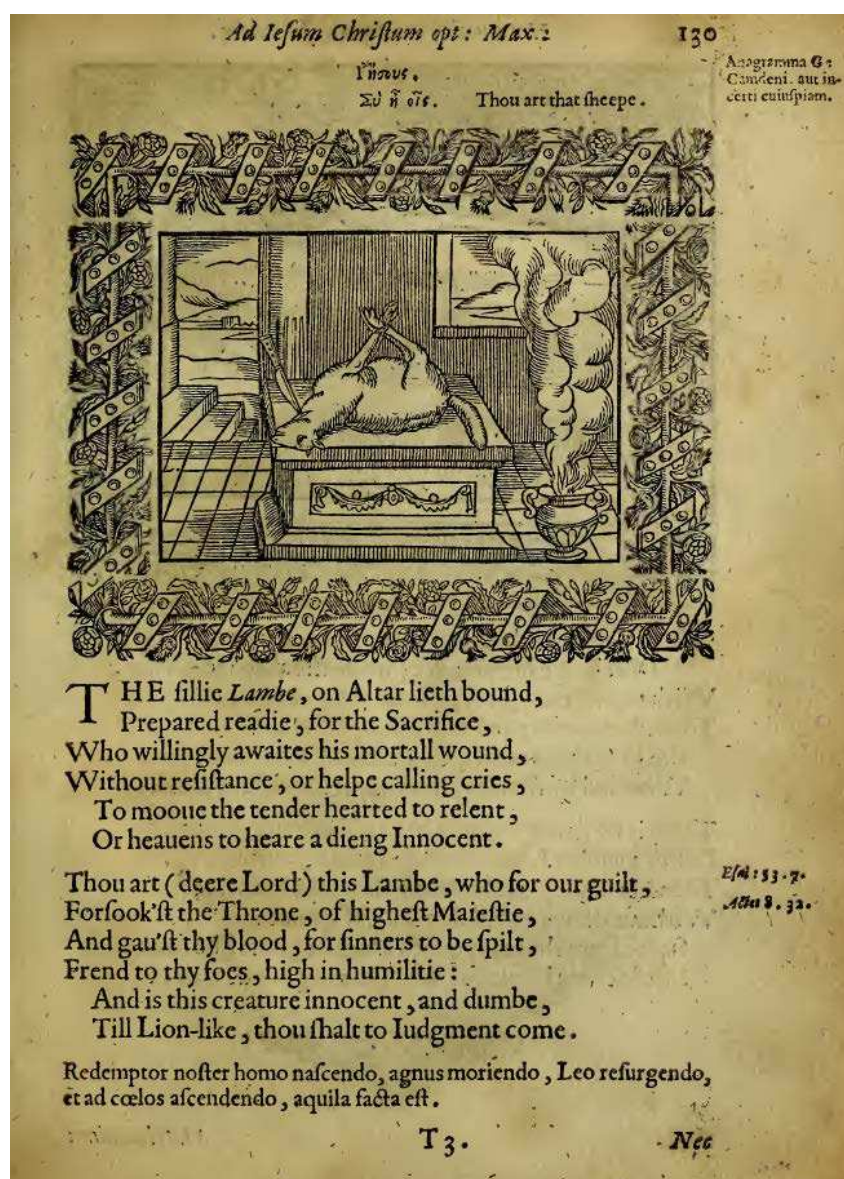 Ad Iesum Christum opt: Max: 130
Ἰησους. Anagramma G:
Σὺ ἦ οἶς. Thou art that sheepe. Camdeni. aut in-
certi cuiuspiam.
THE sillie Lambe, on Altar lieth bound,
Prepared readie, for the Sacrifice,
Who willingly awaites his mortall wound,
Without resistance, or helpe calling cries,
To mooue the tender hearted to relent,
Or heauens to heare a dieng Innocent.
Thou art (deere Lord) this Lambe, who for our guilt, Esai: 53.7.
Forsook'st the Throne, of highest Maiestie, Actes 8.32.
And gau'st thy blood, for sinners to be spilt,
Frend to thy foes, high in humilitie:
And is this creature innocent, and dumbe,
Till Lion-like, thou shalt to Iudgment come.
Redemptor noster homo nascendo, agnus moriendo, Leo resurgendo,
et ad cœlos ascendendo, aquila facta est.
T3. Nec